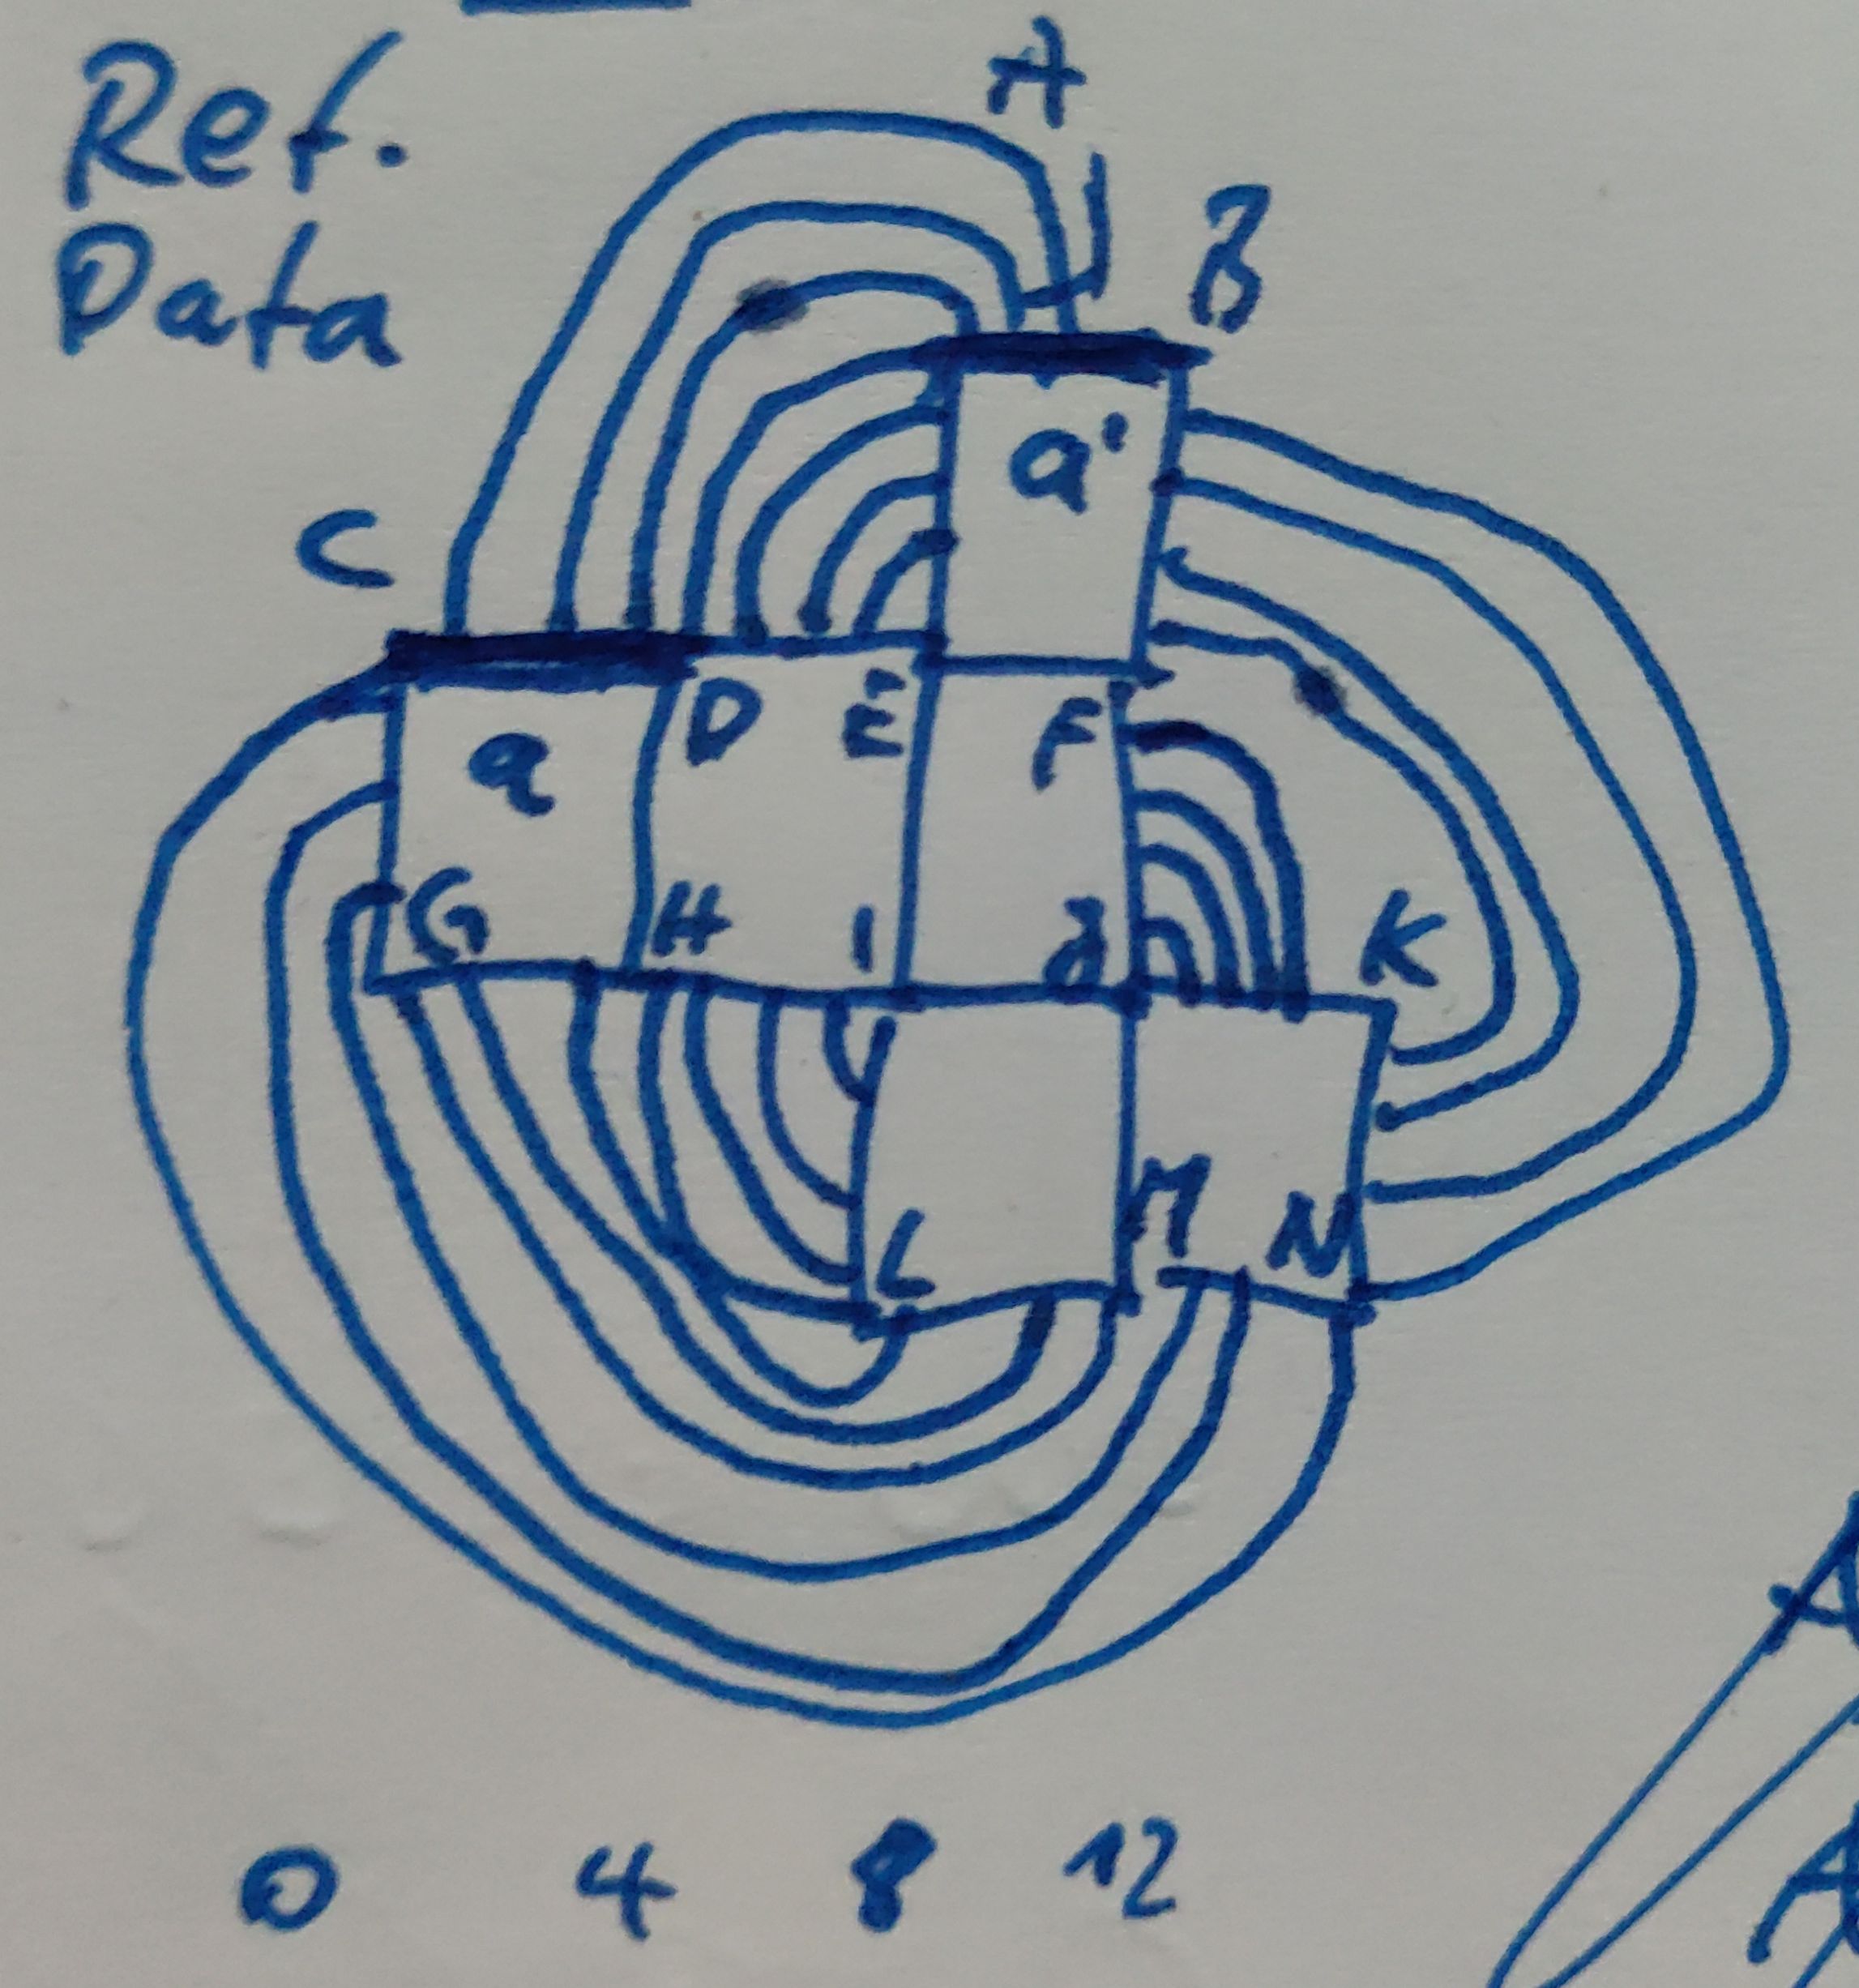 Ref.
Data
A
B
C
a'
D E F
a
G H I J K
L M N
0 4 8 12
A
A